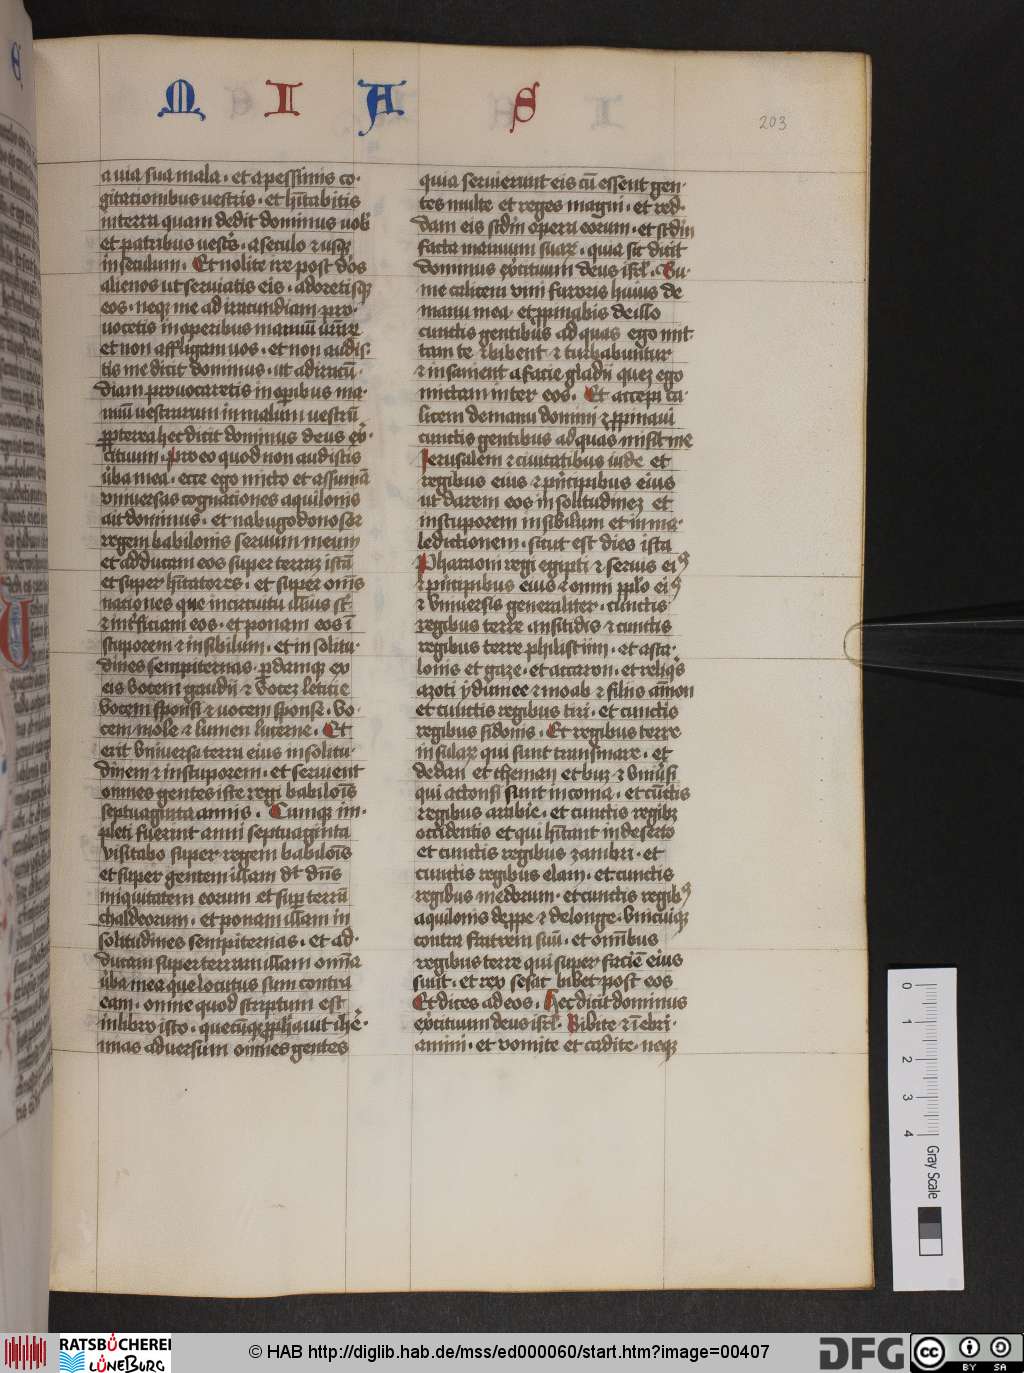 M I A S
203
a uia sua mala · et a pessimis co·
gitationibus uestris · et hītabitis
in terra quam dedit dominus uob'
et patribus uest's · a seculo ⁊ usqꝫ
in seculum · Et nolite ire post d'os
alienos ut seruiatis eis · adoretisqꝫ
eos · neqꝫ me ad iracundiam pro·
uocetis in operibus manuū ūrarꝝ
et non affligam uos · et non audis·
tis me dicit dominus · ut ad iracū·
diam prouocaretis in oꝑibus ma·
nuū uestrarum in malum uestrū
ꝓpterea hec dicit dominus deus ex·
cituum · Pro eo quod non audistis
ūba mea · ecce ego micto et assumā
vniuersas cognationes aquilonis
ait dominus · et nabugodonosor
regem babilonis seruum meum
et adducam eos super terraꝫ istā
et super hītatores · et super oīs
nationes que in circuitu illius st̄
⁊ int'ficiam eos · et ponam eos ī
stuporem ⁊ in sibilum · et in solitu·
dines sempiternas · ꝑdamqꝫ ex
eis vocem gaudij ⁊ voceꝫ letitie
vocem sponsi ⁊ uocem sponse · vo·
cem mole ⁊ lumen lucerne · Et
erit vniuersa terra eius in solitu·
dinem ⁊ in stuporem · et seruient
omnes gentes iste regi babilōis
septuaginta annis · Cumqꝫ im·
pleti fuerint anni septuaginta
visitabo super regem babilōis
et super gentem illam dt dn̄s
iniquitatem eorum et suꝑ terrā
chaldeorum · et ponam illam in
solitudines sempiternas · et ad·
ducam super terram illam om̄a
ūba mea que locutus sum contra
eam · omne quod scriptum est
in libro isto · quecūqꝫ ꝓphauit ihe'·
mias aduersum omnes gentes
quia seruierunt eis cū essent gen·
tes multe et reges magni · et red·
dam eis sc̄dm opera eorum · et sc̄dm
facta manuum suarꝝ · quia sic dicit
dominus exercituum deus isrl' · Su·
me calicem vini furoris huius de
manu mea · et ꝓpinabis de illo
cunctis gentibus ad quas ego mit·
tam te ⁊ bibent ⁊ turbabuntur
⁊ insanient a facie gladij queꝫ ego
mictam inter eos · Et accepi ca·
licem de manu domini ⁊ ꝓpinaui
cunctis gentibus ad quas misit me
Ierusalem ⁊ ciuitatibus iude et
regibus eius ⁊ principibus eius
ut darem eos in solitudineꝫ et
in stuporem in sibilum et in ma·
ledictionem · sicut est dies ista
Pharaoni regi egipti ⁊ seruis ei⁹
⁊ principibus eius ⁊ omni pplo ei⁹
⁊ vniuersis generaliter · cunctis
regibus terre ausitidis ⁊ cunctis
regibus terre philistiim · et asca·
lonis et gaze · et accaron · et reliqs
azoti ydumee ⁊ moab ⁊ filiis amōn
et cunctis regibus tiri · et cunctis
regibus sidonis · Et regibus terre
insularꝝ qui sunt trans mare · et
dedan et theman et buz ⁊ vniūsi
qui actonsi sunt in coma · et cūctis
regibus arabie · et cunctis regibꝫ
occidentis et qui hītant in deserto
et cunctis regibus zambri · et
cunctis regibus elam · et cunctis
regibus medorum · et cunctis regib⁹
aquilonis de ꝓpe ⁊ de longe · vnicuiqꝫ
contra fratrem suū · et omībus
regibus terre qui super faciē eius
sunt · et rex sesac bibet post eos
Et dices ad eos · Hec dicit dominus
exercituum deus isrl' · Bibite ⁊ īebri·
amini · et vomite et cadite · neqꝫ
0
1
2
3
4
Gray Scale
RATSBÜCHEREI
LÜNEBURG
© HAB http://diglib.hab.de/mss/ed000060/start.htm?image=00407
DFG
cc
BY SA